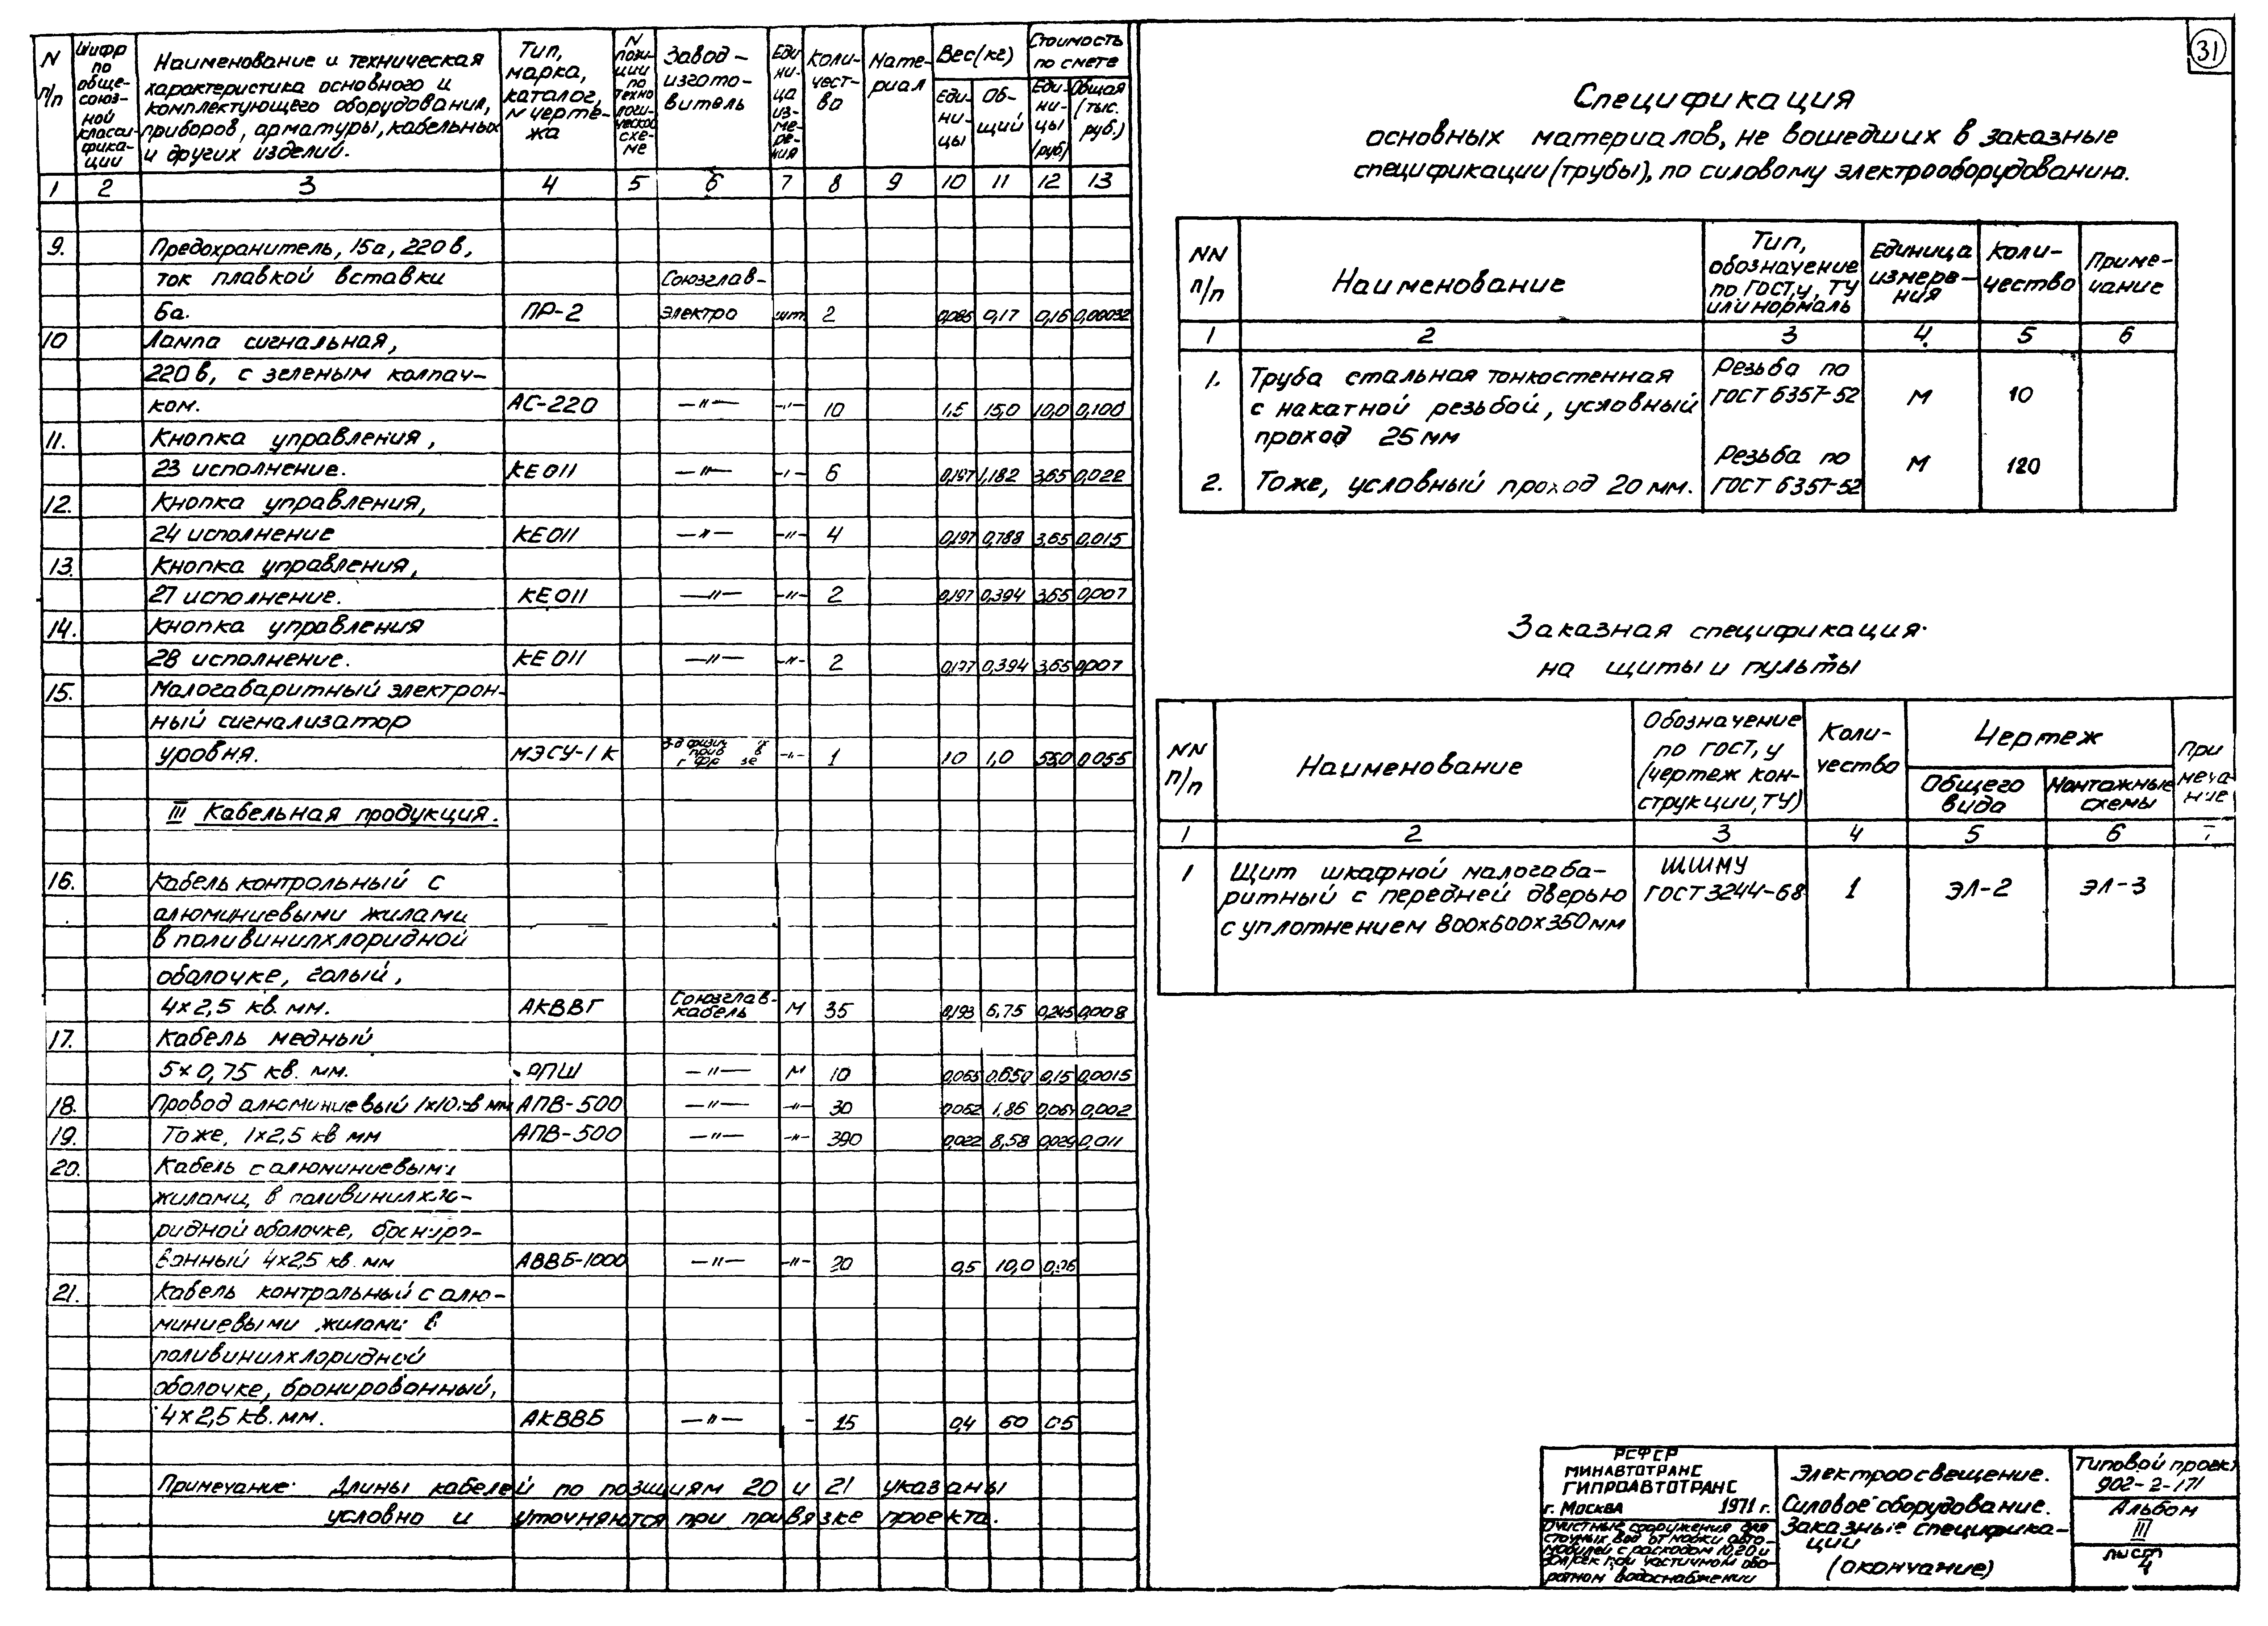 31
N п/п
Шифр по обще-союз-ной класси-фика-ции
Наименование и техническая
характеристика основного и
комплектующего оборудования,
приборов, арматуры, кабельных
и других изделий.
Тип, марка, каталог, N черте-жа
N пози-ции по техно логи-ческой схе-ме
Завод-изгото-витель
Еди-ни-ца из-ме-ре-ния
Коли-чест-во
Мате-риал
Вес(кг)
Еди-ни-цы
Об-щий
Стоимость по смете
Еди-ни-цы (руб)
Общая (тыс. руб.)
1 2 3 4 5 6 7 8 9 10 11 12 13
9. Предохранитель, 15а, 220в,
ток плавкой вставки Союзглав-
6а. ПР-2 электро шт. 2 0,085 0,17 0,16 0,00032
10 Лампа сигнальная,
220в, с зеленым колпач-
ком. АС-220 —"— —"— 10 1,5 15,0 10,0 0,100
11. Кнопка управления,
23 исполнение. КЕ011 —"— —"— 6 0,197 1,182 3,65 0,022
12. Кнопка управления,
24 исполнение КЕ011 —"— —"— 4 0,197 0,788 3,65 0,015
13. Кнопка управления,
27 исполнение. КЕ011 —"— —"— 2 0,197 0,394 3,65 0,007
14. Кнопка управления
28 исполнение. КЕ011 —"— —"— 2 0,197 0,394 3,65 0,007
15. Малогабаритный электрон-
ный сигнализатор
уровня. МЭСУ-1К —"— 1 10 1,0 55,0 0,055
III Кабельная продукция.
16. Кабель контрольный с
алюминиевыми жилами
в поливинилхлоридной
оболочке, голый,
4х2,5 кв. мм. АКВВГ Союзглав-кабель м 35 0,193 6,75 0,245 0,008
17. Кабель медный
5х0,75 кв. мм. РПШ —"— м 10 0,065 0,650 0,15 0,0015
18. Провод алюминиевый 1х10кв мм АПВ-500 —"— —"— 30 0,062 1,86 0,064 0,002
19. Тоже, 1х2,5 кв мм АПВ-500 —"— —"— 390 0,022 8,58 0,029 0,011
20. Кабель с алюминиевыми
жилами, в поливинилхло-
ридной оболочке, брониро-
ванный 4х2,5 кв. мм АВВБ-1000 —"— —"— 20 0,5 10,0
21. Кабель контрольный с алю-
миниевыми жилами в
поливинилхлоридной
оболочке, бронированный,
4х2,5 кв. мм. АКВВБ —"— - 15 0,4 60 0,5
Примечание: Длины кабелей по позициям 20 и 21 указаны
условно и уточняются при привязке проекта.
Спецификация
основных материалов, не вошедших в заказные
спецификации (трубы), по силовому электрооборудованию.
NN п/п
Наименование
Тип, обозначение по ГОСТ,у, ТУ или нормаль
Единица измере-ния
Коли-чество
Приме-чание
1 2 3 4. 5 6
1. Труба стальная тонкостенная Резьба по
с накатной резьбой, условный ГОСТ 6357-52 м 10
проход 25 мм
Резьба по
2. Тоже, условный проход 20 мм. ГОСТ 6357-52 м 120
Заказная спецификация
на щиты и пульты
NN п/п
Наименование
Обозначение по гост, у (чертеж кон-струкции, ТУ)
Коли-чество
Чертеж
Общего вида
Монтажные схемы
При меча-ние
1 2 3 4 5 6 7
1 Щит шкафной малогаба- ЩШМУ
ритный с передней дверью ГОСТ 3244-68 1 ЭЛ-2 ЭЛ-3
с уплотнением 800х600х350мм
РСФСР
МИНАВТОТРАНС
ГИПРОАВТОТРАНС
г. Москва 1971 г.
Очистные сооружения для
сточных вод от мойки авто-
мобилей с расходом 10,20 и
30л/сек при частичном обо-
ротном водоснабжении
Электроосвещение.
Силовое оборудование.
Заказные специфика-
ции
(окончание)
Типовой проект
902-2-171
Альбом
III
лист
4